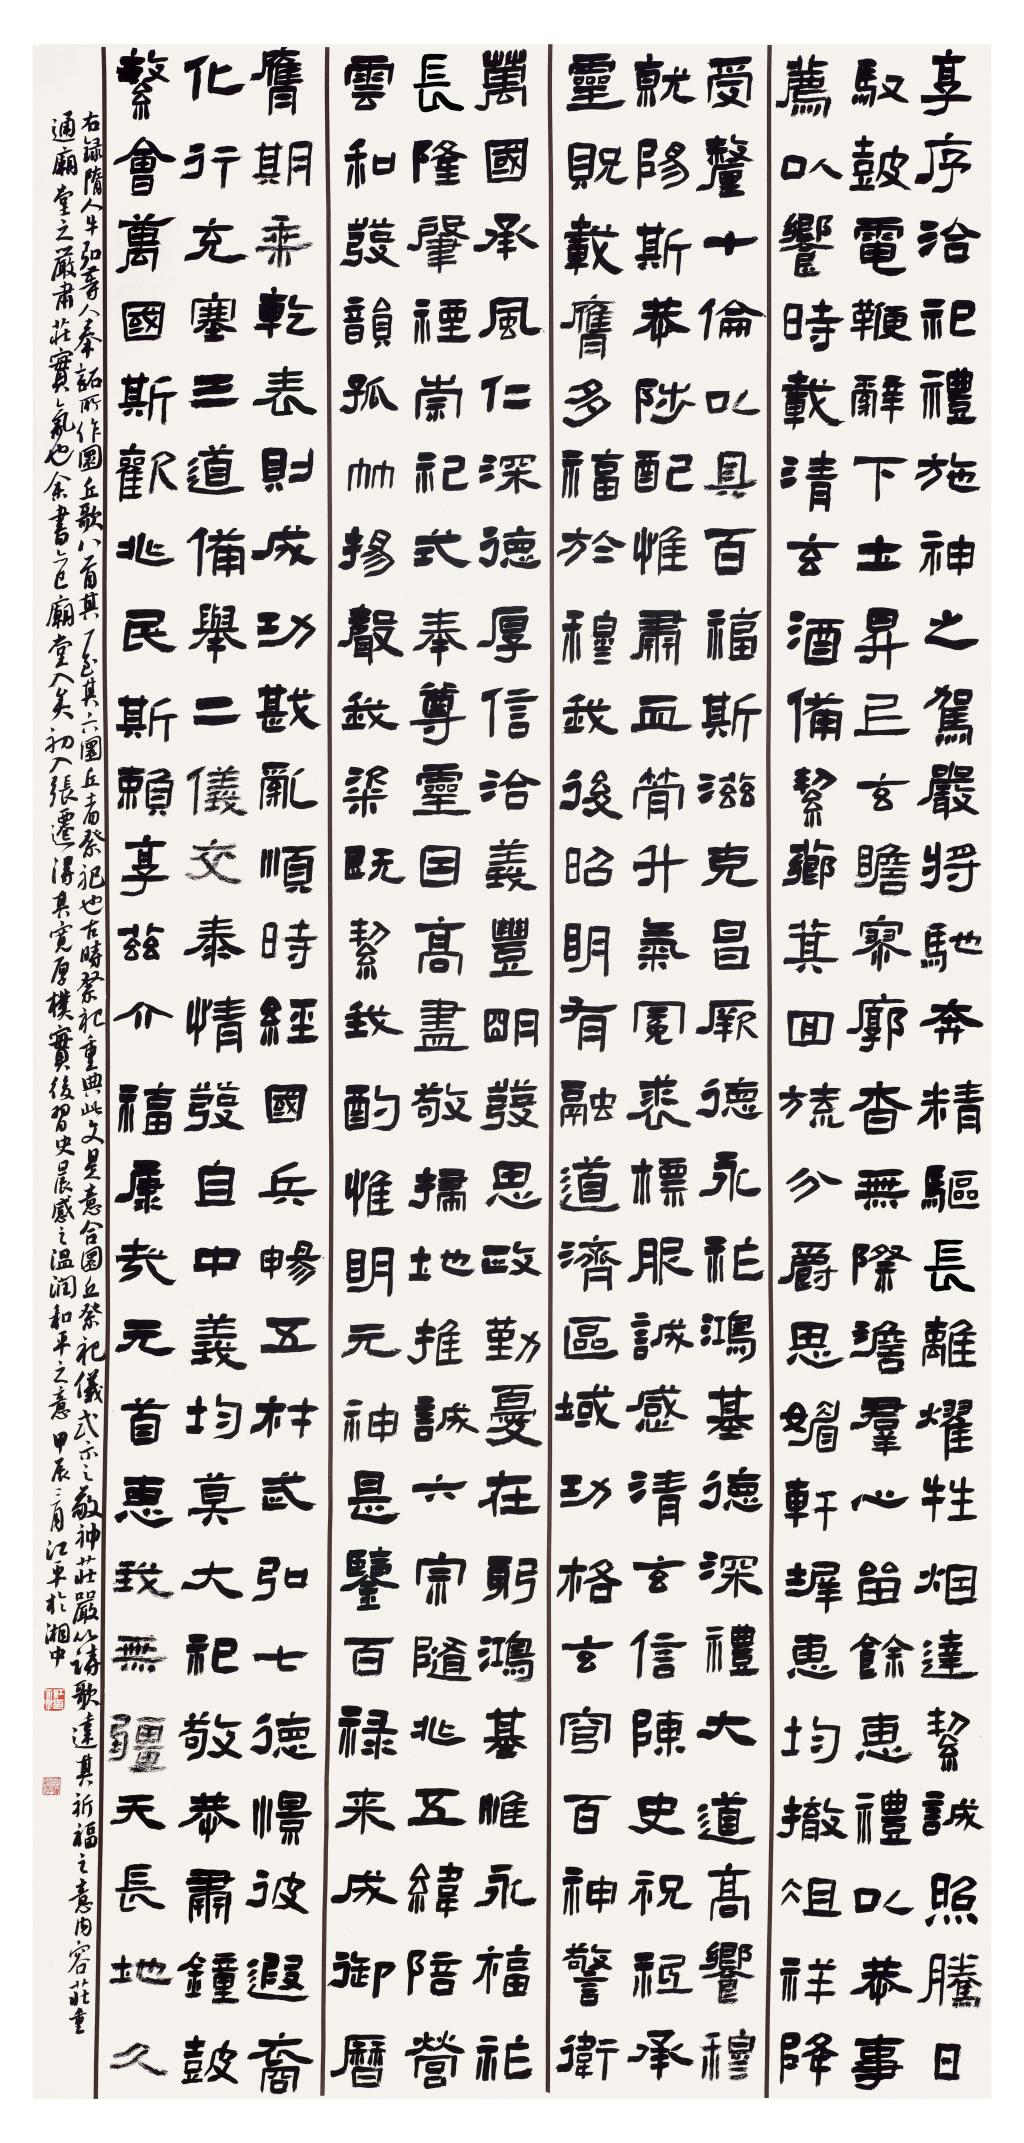 享序洽祀禮施神之駕嚴將馳奔精驅長離燿牲烟達絜誠照騰日
馭鼓電鞭辭下土昇已玄瞻寥廓杳無際澹羣心留餘惠禮以恭事
薦以饗時載清玄酒備絜薌萁回旒分爵思媚軒墀惠均撤俎祥降
受釐十倫以具百福斯滋克昌厥德永祚鴻基德深禮大道高饗穆
就陽斯恭陟配惟肅血膋升氣冕裘標服誠感清玄信陳史祝祗承
靈貺載膺多福於穆我後昭明有融道濟區域功格玄穹百神警衛
萬國承風仁深德厚信洽義豐明發思政勤憂在躬鴻基惟永福祚
長隆肇禋崇祀式奉尊靈因高盡敬掃地推誠六宗隨兆五緯陪營
雲和發韻孤竹揚聲我粢既絜我酌惟明元神是鑒百祿来成御曆
膺期乘乾表則成功戡亂順時經國兵暢五材武弘七德憬彼遐裔
化行充塞三道備舉二儀交泰情發自中義均莫大祀敬恭肅鐘鼓
繁會萬國斯歡兆民斯賴享茲介福康哉元首惠我無疆天長地久
右録隋人牛弘等人奉詔所作圜丘歌八首其一至其六圜丘者祭祀也古時祭祀重典此文是意合圜丘祭祀儀式示之敬神莊嚴以詩歌達其祈福之意内容莊重
通廟堂之嚴肅莊實氣也余書亡廟堂入矣初入張遷得其寬厚樸實後習史晨感之温润和平之意甲辰二月江平於湘中